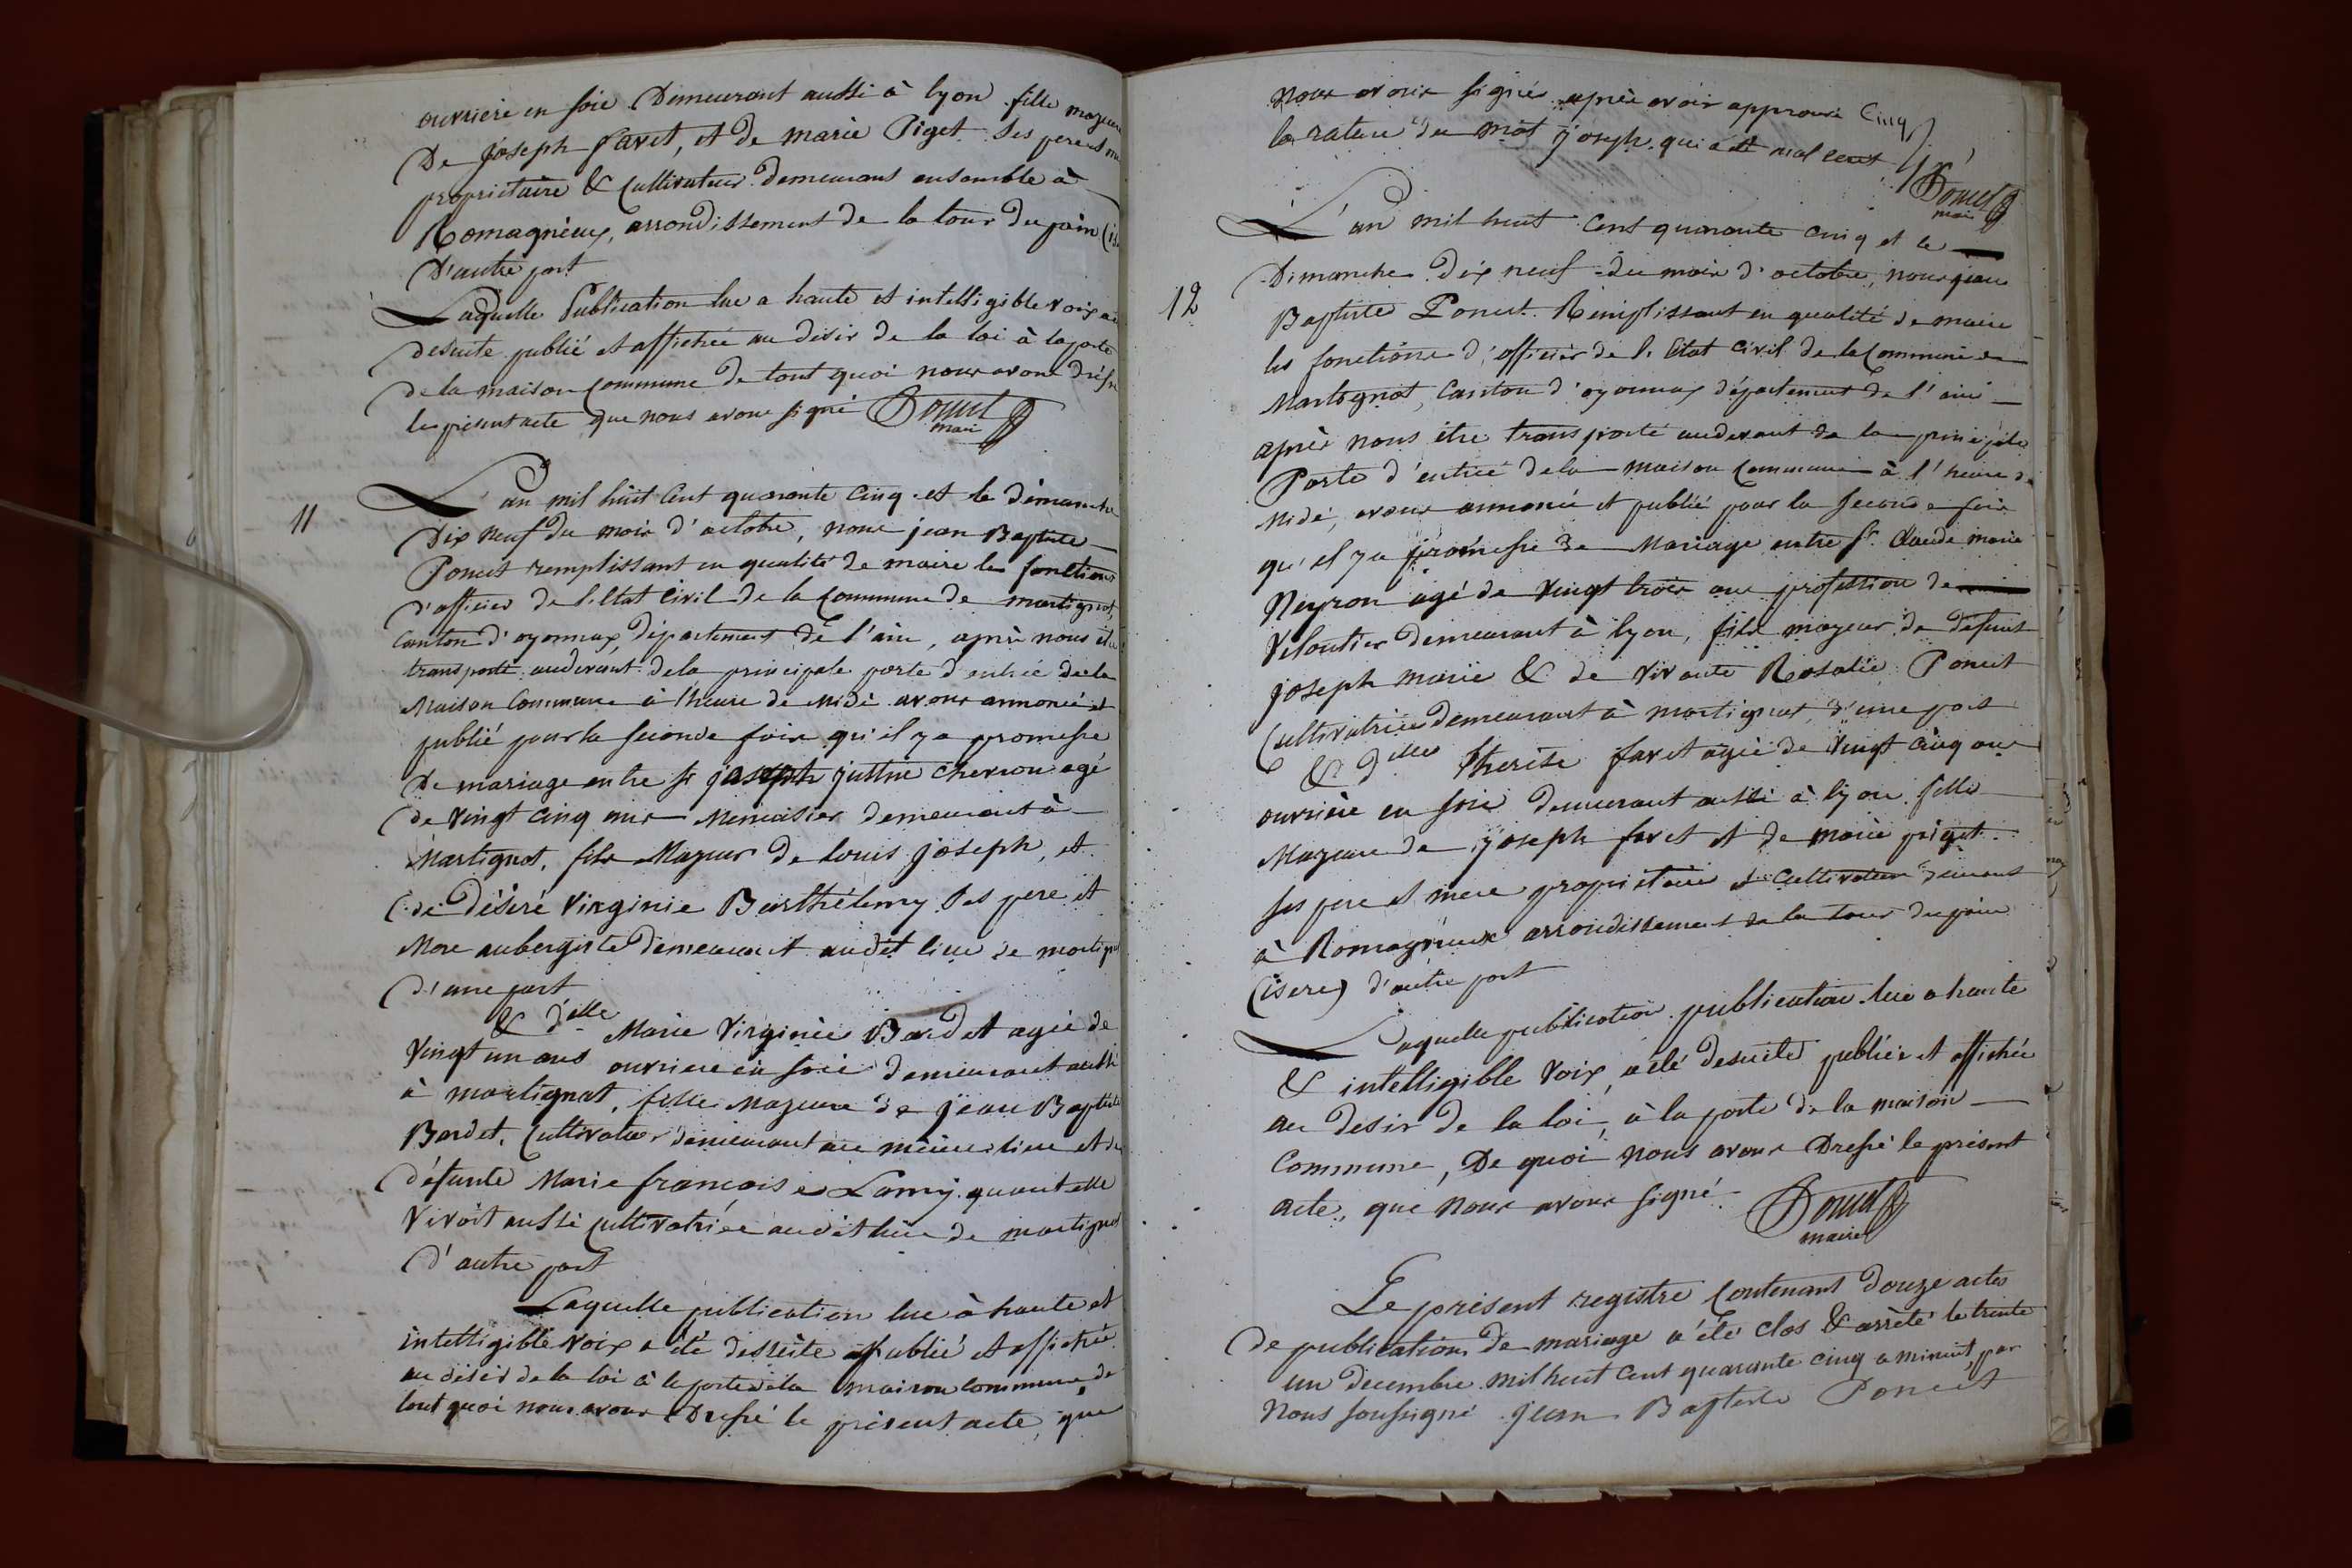 ouvriere en soie Demeurant aussi à lyon fille majeure
De joseph favet, et de marie Piget Ses pere et
propriétaire & Cultivateur demeurans ensemble à
Romagnieux, arrondissement de la tour du pin
D'autre part
Laquelle Publication lue a haute et intelligible voix a
desuite publié et affichée au désir de la loi à la porte
de la maison commune De tout quoi nous avons dréssé
le présent acte que nous avons signé Poncet
maire
11
L'an mil huit Cent quarante Cinq et le dimanche
Dix neuf du mois d'octobre, nous jean Baptiste
Poncet remplissant en qualité de maire les fonctions
d'officier de l'Etat Civil de la Commune de martignat,
Canton d'oyonnax, département de l'ain, après nous être
transporté audevant dela principale porte d'entrée dela
Maison Commune à l'heure de Midi avons annoncé et
publié pour la seconde fois qu'il y a promesse
De mariage entre Sr joseph justine chevron agé
de vingt cinq ans Menuisier demeurant à
Martignat, fils Majeur de louis joseph, et
de Désiré Virginie Barthélemy Ses pere et
Mere aubergiste demeurant audit lieu de martignat
D'une part
& dlle Marie Virginie Bardet agée de
vingt un ans ouvriere en soie demeurant aussi
à martignat, fille Majeure de jean Baptiste
Bardet, Cultivateur demeurant au même lieu et de
défunte Marie françoise Lamy quant elle
Vivoit aussi cultivatrice audit lieu de martignat
D'autre part
Laquelle publication lue à haute et
intelligible voix a été desuite publié et affichée
au désir de la loi à la porte dela maison commune, de
tout quoi nous avons Dressé le présent acte, que
nous avons signés après avoir approuvé Cinq
la rature du mot joseph qui a été mal ecrit
Poncet
maire
12
L'an mil huit Cent quarante Cinq et le
Dimanche Dix neuf du mois d'octobre, nous jean
Baptiste Poncet Remplissant en qualité de maire
les fonctions d'officier de l'Etat Civil de la Commune de
Martignat, Canton d'oyonnax département de l'ain
après nous être transporté audevant de la principale
Porte d'entrée dela maison Commune à l'heure de
Midi, avons annoncé et publié pour la Seconde fois
qu'il y a promesse de Mariage entre Sr Claude marie
Neyron agé de vingt trois ans profession de
Veloutier demeurant à lyon, fils majeur de défunt
joseph marie & de vivante Rosalie Poncet
Cultivatrice demeurant à martignat, d'une part
& dlle Therèse favet agée de vingt cinq ans
ouvrière en soie demeurant aussi à lyon fille
Majeure de joseph favet et de marie piget
ses pere et mere propriétaire et Cultivateur demeurant
à Romagnieux arrondissement de la tour du pin
(isere) d'autre part
Laquelle publication publication lue a haute
& intelligible voix, a été desuite publiée et affichée
au desir de la loi, à la porte de la maison
Commune, De quoi nous avons Dressé le présent
acte, que nous avons signé Poncet
maire
Le présent registre Contenant douze actes
de publications de mariage a été clos & arrêté le trente
un Decembre mil huit cent quarante cinq a minuit, par
Nous soussigné jean Baptiste Poncet